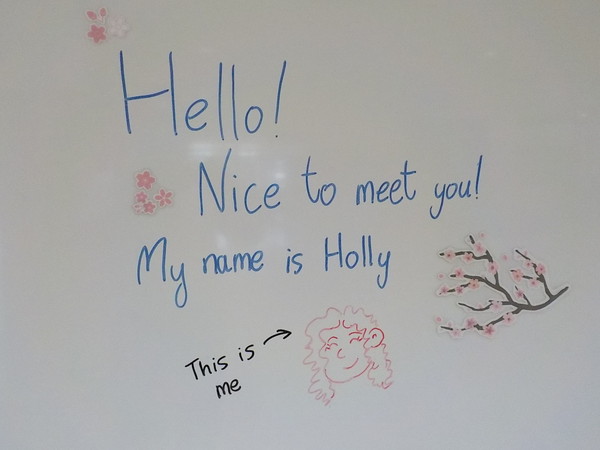 Hello!
Nice to meet you!
My name is Holly
This is
me